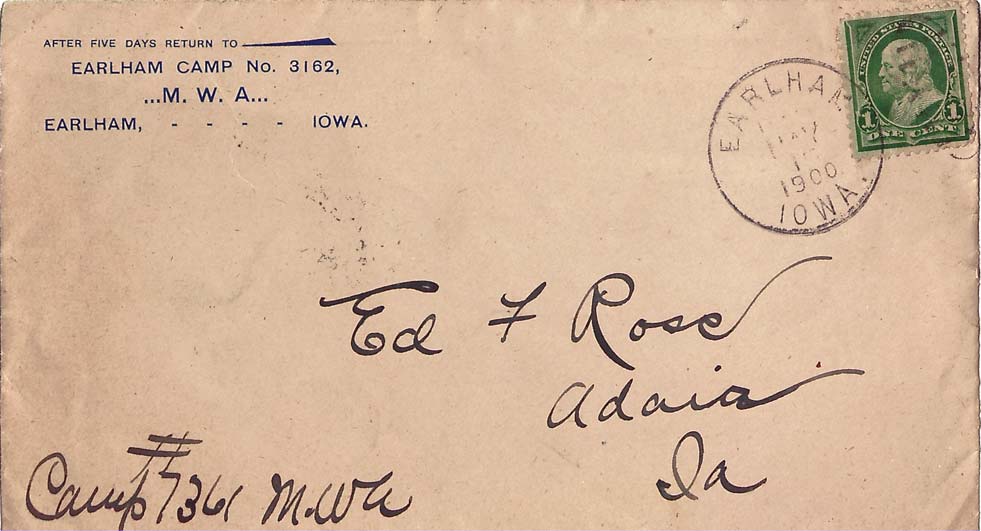 AFTER FIVE DAYS RETURN TO
EARLHAM CAMP No. 3162,
...M. W. A...
EARLHAM, - - - - IOWA.
EARLHAM
MAY
1900
IOWA.
UNITED STATES POSTAGE
1 1
ONE CENT
Ed F Rose
Adair
Ia
Camp # 7361 M.W.A